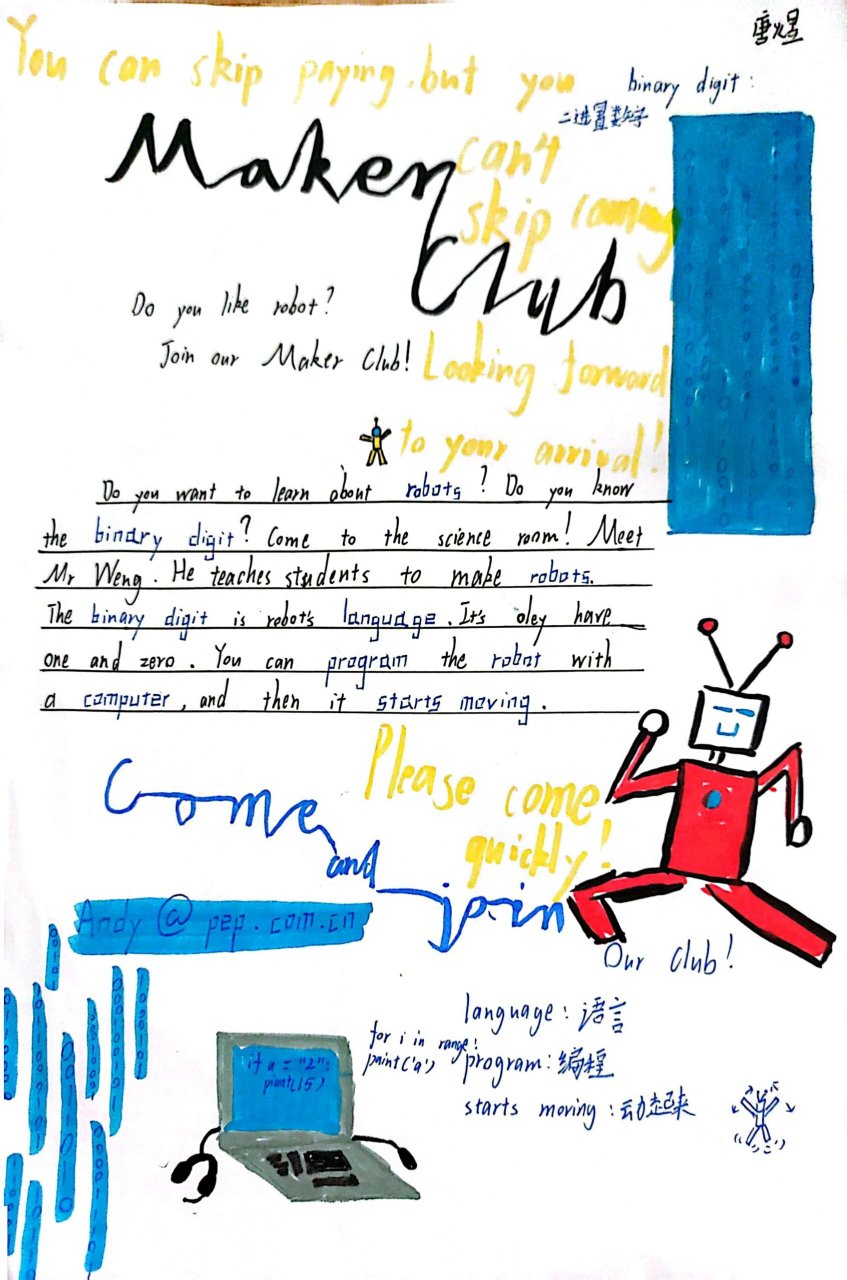 唐煜
You can skip paying. but you
can't
skip coming
binary digit:
二进置数字
Maker
Club
Do you like robot?
Join our Maker Club!
Looking forward
to your arrival!
Do you want to learn about robots? Do you know
the binary digit? Come to the science room! Meet
Mr Weng. He teaches students to make robots.
The binary digit is robot's language. It's oley have
one and zero. You can program the robot with
a computer, and then it starts moving.
Please come
quickly!
Come
and
join
Our Club!
Andy@pep.com.cn
language: 语言
for i in range:
paint('a')
program: 编程
starts moving: 动起来
if a = "2":
piant(15)